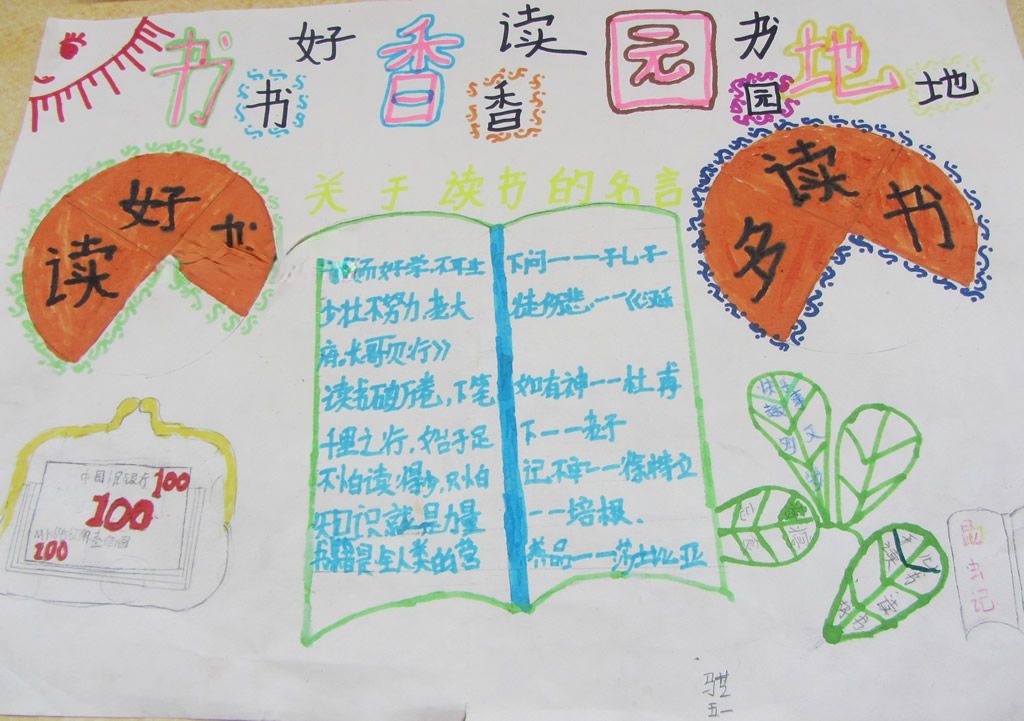 书 好 香 读 园 书 地
书 香 园 地
读好书
多读书
关于读书的名言
好学,不耻下问——孔子
少壮不努力,老大徒伤悲.——《汉
府.长哥贝行》
读书破万卷,下笔如有神——杜甫
千里之行,始于足下——老子
不怕读得少,只怕记不牢——徐特立
知识就是力量——培根.
书籍是全人类的营养品——莎士比亚
中国
100
100
100
虫记
五一